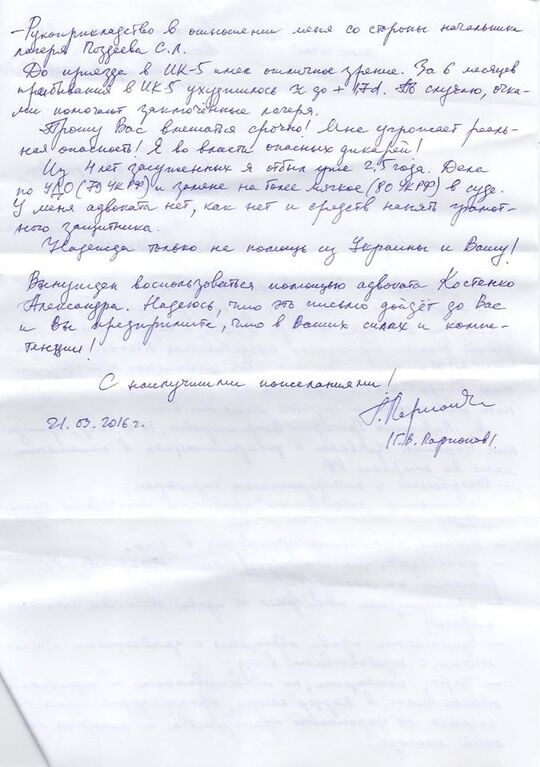 - Рукоприкладство в отношении меня со стороны начальника
лагеря Поздеева С.Л.
До приезда в ИК-5 имел отличное зрение. За 6 месяцев
пребывания в ИК-5 ухудшилось до +
ми помогают заключённые лагеря.
Прошу Вас вмешаться срочно! Мне угрожает реаль-
ная опасность! Я во власти опасных дикарей!
Из 4 лет засуженных я отбыл уже 2,5 года. Дела
по УДО (79 УК РФ) и замене на более мягкое (80 УК РФ) в суде.
У меня адвоката нет, как нет и средств нанять грамот-
ного защитника.
Надежда только на помощь из Украины и Вашу!
Вынужден воспользоваться помощью адвоката Костенко
Александра. Надеюсь, что это письмо дойдёт до Вас
и Вы предпримите, что в Ваших силах и компе-
тенции!
С наилучшими пожеланиями!
21.03.2016 г.